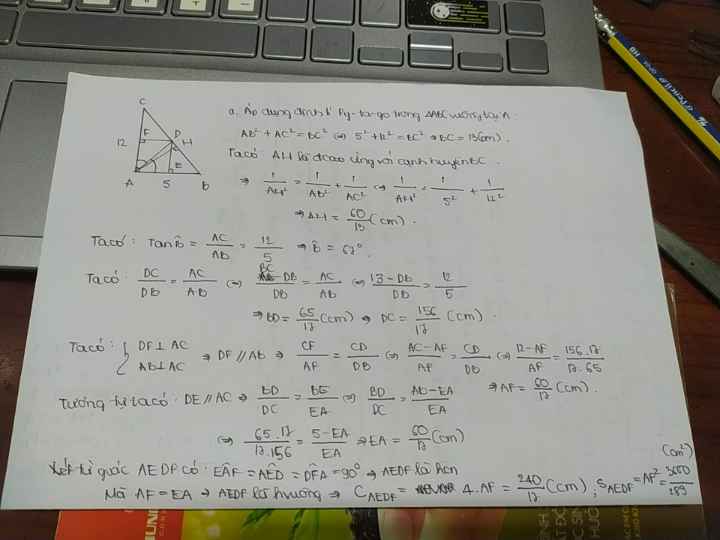 a. Áp dụng định lí Py-ta-go trong ΔABC vuông tại A:
AB² + AC² = BC² ⇔ 5² + 12² = BC² ⇒ BC = 13(cm).
Ta có AH là đcao ứng với cạnh huyền BC.
⇒ 1/AH² = 1/AB² + 1/AC² ⇔ 1/AH² = 1/5² + 1/12²
⇒ AH = 60/13 (cm).
C
F D H
12
E
A 5 B
Ta có: Tan B̂ = AC/AB = 12/5 ⇒ B̂ = 67°.
Ta có: DC/DB = AC/AB ⇔ (BC - DB)/DB = AC/AB ⇔ (13-DB)/DB = 12/5
⇒ BD = 65/17 (cm) ⇒ DC = 156/17 (cm).
Ta có: { DF ⊥ AC
AB ⊥ AC ⇒ DF // AB ⇒ CF/AF = CD/DB ⇔ (AC-AF)/AF = CD/DB ⇔ (12-AF)/AF = 156.17/17.65
⇒ AF = 60/17 (cm).
Tương tự ta có: DE // AC ⇒ BD/DC = BE/EA ⇔ BD/DC = (AB-EA)/EA
⇔ 65.17/17.156 = (5-EA)/EA ⇒ EA = 60/17 (cm)
Xét tứ giác AEDF có: EÂF = AÊD = DF̂A = 90° ⇒ AEDF là hcn
Mà AF = EA ⇒ AEDF là hvuông ⇒ C_AEDF = 4.AF = 240/17 (cm); S_AEDF = AF² = 3600/289 (cm²)
Pencil
HB